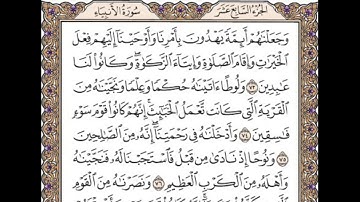 الجزء السابع عشر سورة الأنبياء
وَجَعَلْنَٰهُمْ أَئِمَّةً يَهْدُونَ بِأَمْرِنَا وَأَوْحَيْنَآ إِلَيْهِمْ فِعْلَ
ٱلْخَيْرَٰتِ وَإِقَامَ ٱلصَّلَوٰةِ وَإِيتَآءَ ٱلزَّكَوٰةِ ۖ وَكَانُوا۟ لَنَا
عَٰبِدِينَ ٧٣ وَلُوطًا ءَاتَيْنَٰهُ حُكْمًا وَعِلْمًا وَنَجَّيْنَٰهُ مِنَ
ٱلْقَرْيَةِ ٱلَّتِى كَانَت تَّعْمَلُ ٱلْخَبَٰٓئِثَ ۗ إِنَّهُمْ كَانُوا۟ قَوْمَ سَوْءٍ
فَٰسِقِينَ ٧٤ وَأَدْخَلْنَٰهُ فِى رَحْمَتِنَآ ۖ إِنَّهُۥ مِنَ ٱلصَّٰلِحِينَ
٧٥ وَنُوحًا إِذْ نَادَىٰ مِن قَبْلُ فَٱسْتَجَبْنَا لَهُۥ فَنَجَّيْنَٰهُ
وَأَهْلَهُۥ مِنَ ٱلْكَرْبِ ٱلْعَظِيمِ ٧٦ وَنَصَرْنَٰهُ مِنَ ٱلْقَوْمِ